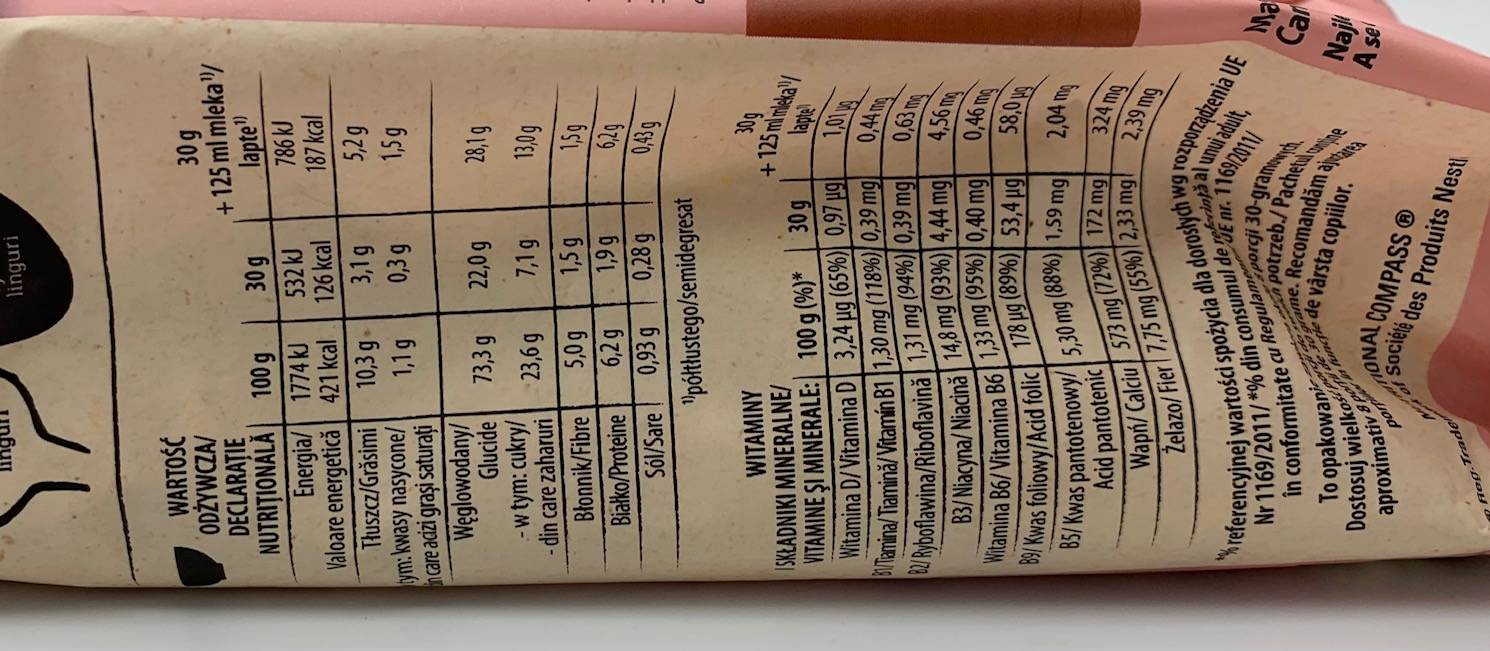 linguri
WARTOŚĆ
ODŻYWCZA/
DECLARAȚIE
NUTRIȚIONALĂ 100 g 30 g 30 g + 125 ml mleka¹⁾/ lapte¹⁾
Energia/ 1774 kJ 532 kJ 786 kJ
Valoare energetică 421 kcal 126 kcal 187 kcal
Tłuszcz/Grăsimi 10,3 g 3,1 g 5,2 g
tym: kwasy nasycone/ 1,1 g 0,3 g 1,5 g
in care acizi grași saturați
Węglowodany/
Glucide 73,3 g 22,0 g 28,1 g
- w tym: cukry/ 23,6 g 7,1 g 13,0 g
- din care zaharuri
Błonnik/Fibre 5,0 g 1,5 g 1,5 g
Białko/Proteine 6,2 g 1,9 g 6,2 g
Sól/Sare 0,93 g 0,28 g 0,43 g
¹⁾półtłustego/semidegresat
WITAMINY
I SKŁADNIKI MINERALNE/
VITAMINE ȘI MINERALE: 100 g (%)* 30 g 30 g + 125 ml mleka¹⁾/ lapte¹⁾
Witamina D/ Vitamina D 3,24 µg (65%) 0,97 µg 1,01 µg
B1/Tiamina/Tiamină/Vitamin B1 1,30 mg (118%) 0,39 mg 0,44 mg
B2/ Ryboflawina/Riboflavină 1,31 mg (94%) 0,39 mg 0,63 mg
B3/ Niacyna/ Niacină 14,8 mg (93%) 4,44 mg 4,56 mg
Witamina B6/ Vitamina B6 1,33 mg (95%) 0,40 mg 0,46 mg
B9/ Kwas foliowy/Acid folic 178 µg (89%) 53,4 µg 58,0 µg
B5/ Kwas pantotenowy/ 5,30 mg (88%) 1,59 mg 2,04 mg
Acid pantotenic
Wapń/ Calciu 573 mg (72%) 172 mg 324 mg
Żelazo/ Fier 7,75 mg (55%) 2,33 mg 2,39 mg
*% referencyjnej wartości spożycia dla dorosłych wg rozporządzenia UE
Nr 1169/2011/ *% din consumul de referință al unui adult,
în conformitate cu Regulamentul UE nr. 1169/2011/
To opakowanie porcji 30-gramowych.
Dostosuj wielkość potrzeb./ Pachetul conține
aproximativ 8 grame. Recomandăm ajustarea
de vârsta copiilor.
IONAL COMPASS ®
Reg. Trade Société des Produits Nestl
Ma
Car
Najl
A se